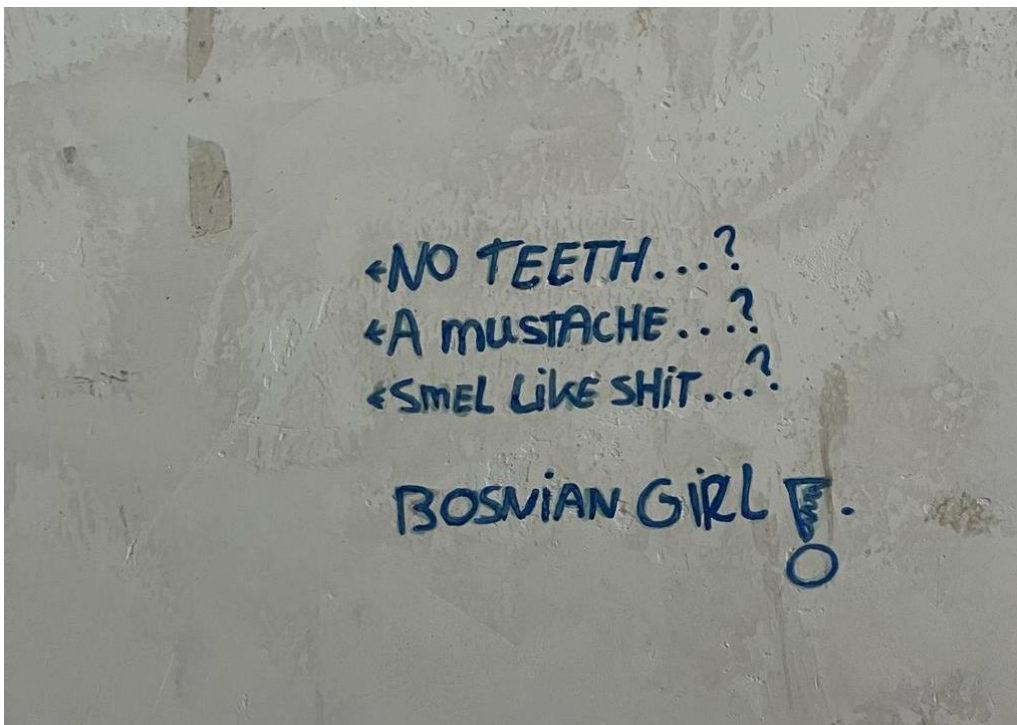 ←NO TEETH...?
←A MUSTACHE...?
←SMEL LIKE SHIT...?
BOSNIAN GIRL!.